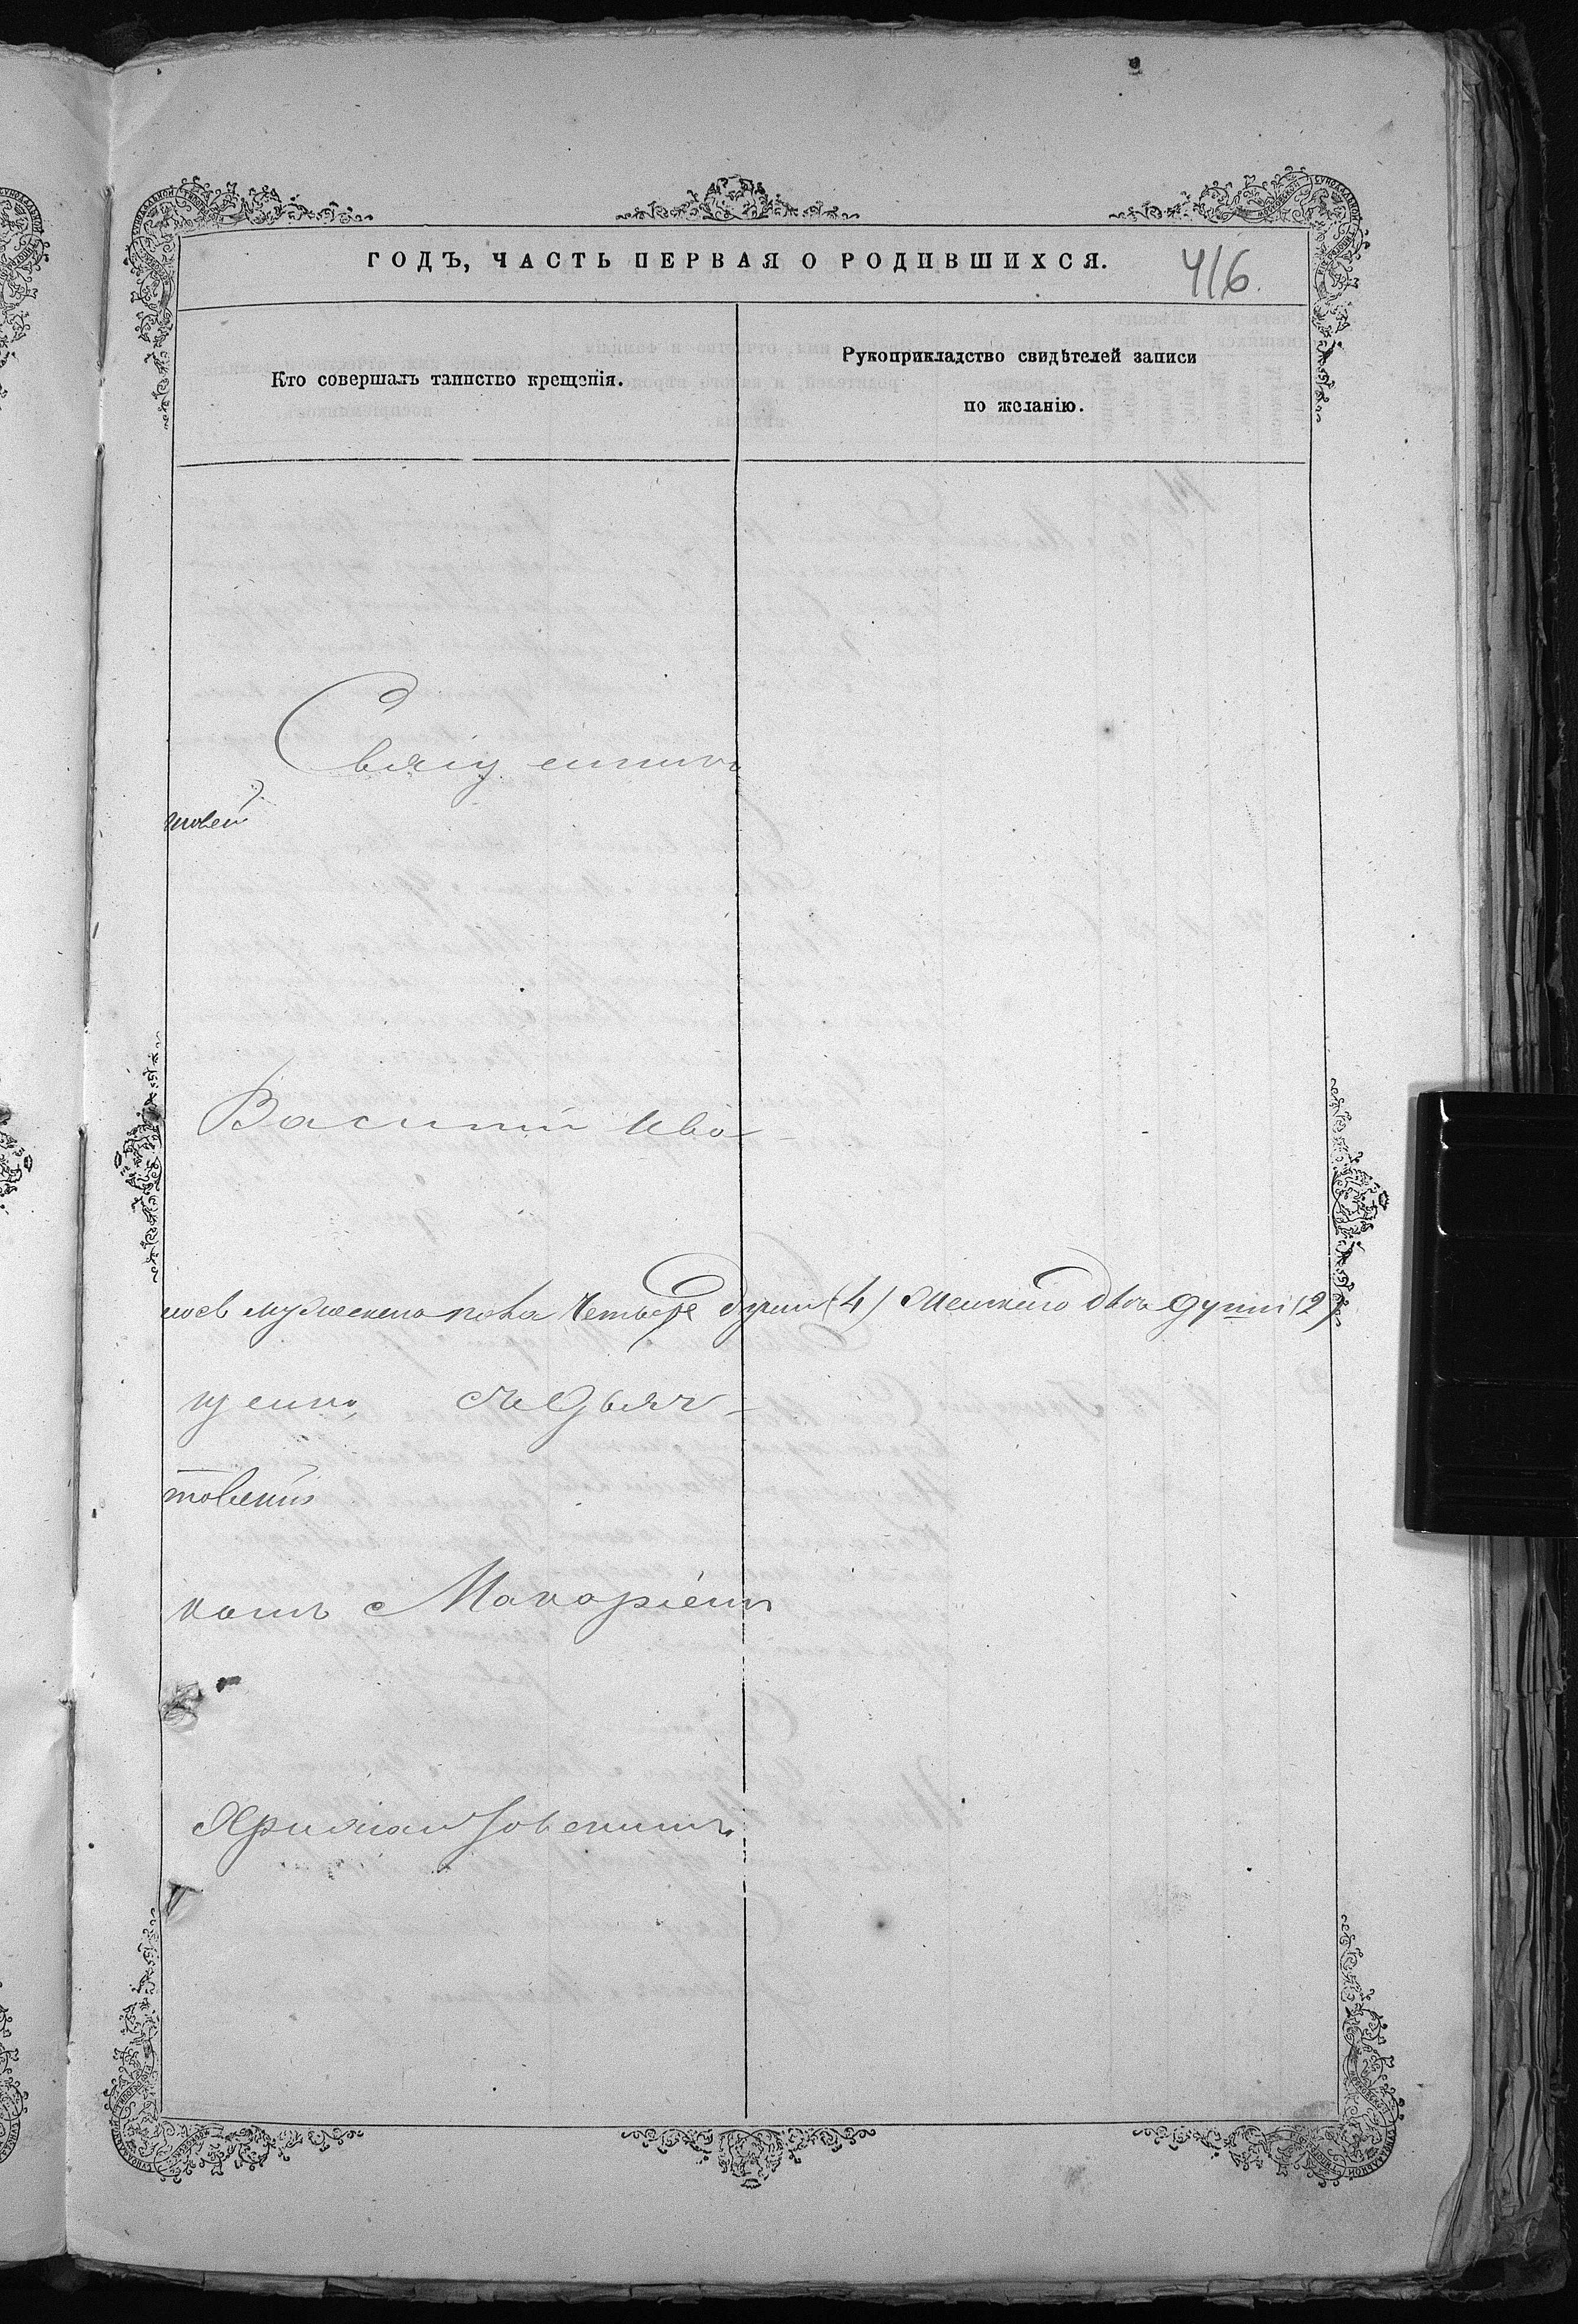 ГОДЪ, ЧАСТЬ ПЕРВАЯ О РОДИВШИХСЯ.
416.
Кто совершалъ таинство крещенія.
Рукоприкладство свидѣтелей записи
по желанію.
Священникъ
Василій Ива-
мужескаго пола четыре души (4) Женскаго двѣ души (2)
щенко, съ дьяч-
товскій
комъ Макаріемъ